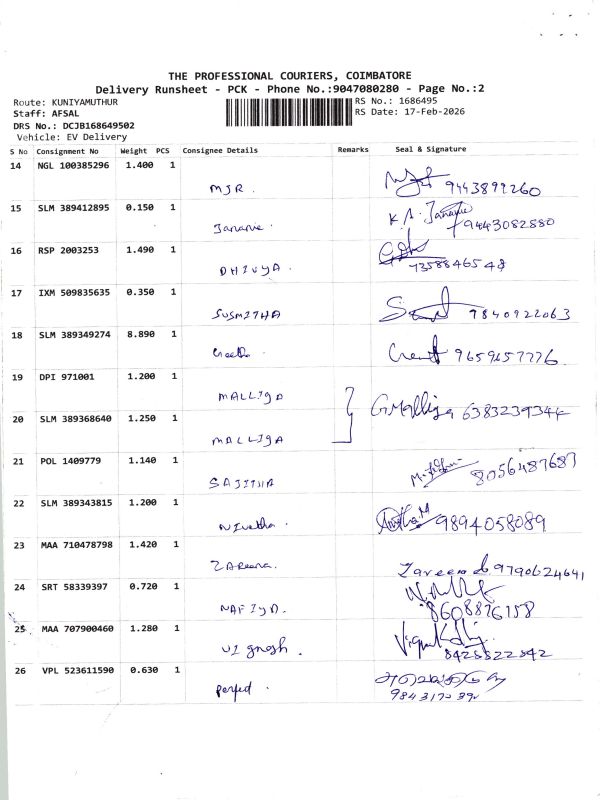 THE PROFESSIONAL COURIERS, COIMBATORE
Delivery Runsheet - PCK - Phone No.:9047080280 - Page No.:2
Route: KUNIYAMUTHUR
RS No.: 1686495
Staff: AFSAL
RS Date: 17-Feb-2026
DRS No.: DCJB168649502
Vehicle: EV Delivery
S No Consignment No Weight PCS Consignee Details Remarks Seal & Signature
14 NGL 100385296 1.400 1
MJR. 9443899260
15 SLM 389412895 0.150 1
Jananie. K.A. Jananie 9443082880
16 RSP 2003253 1.490 1
DHIVYA. 7358846548
17 IXM 509835635 0.350 1
SUSMITHA 9840922063
18 SLM 389349274 8.890 1
Geetha. 9659657776.
19 DPI 971001 1.200 1
MALLIGA G.Malliga 6383239344
20 SLM 389368640 1.250 1
MALLIGA
21 POL 1409779 1.140 1
SAJITHA 8056487687
22 SLM 389343815 1.200 1
Nivetha. 9894058089
23 MAA 710478798 1.420 1
ZAReena. Zareena 9790624641
24 SRT 58339397 0.720 1
NAFIYA. 8608876158
25 MAA 707900460 1.280 1
VIgnesh. 8428522342
26 VPL 523611590 0.630 1
perfed.